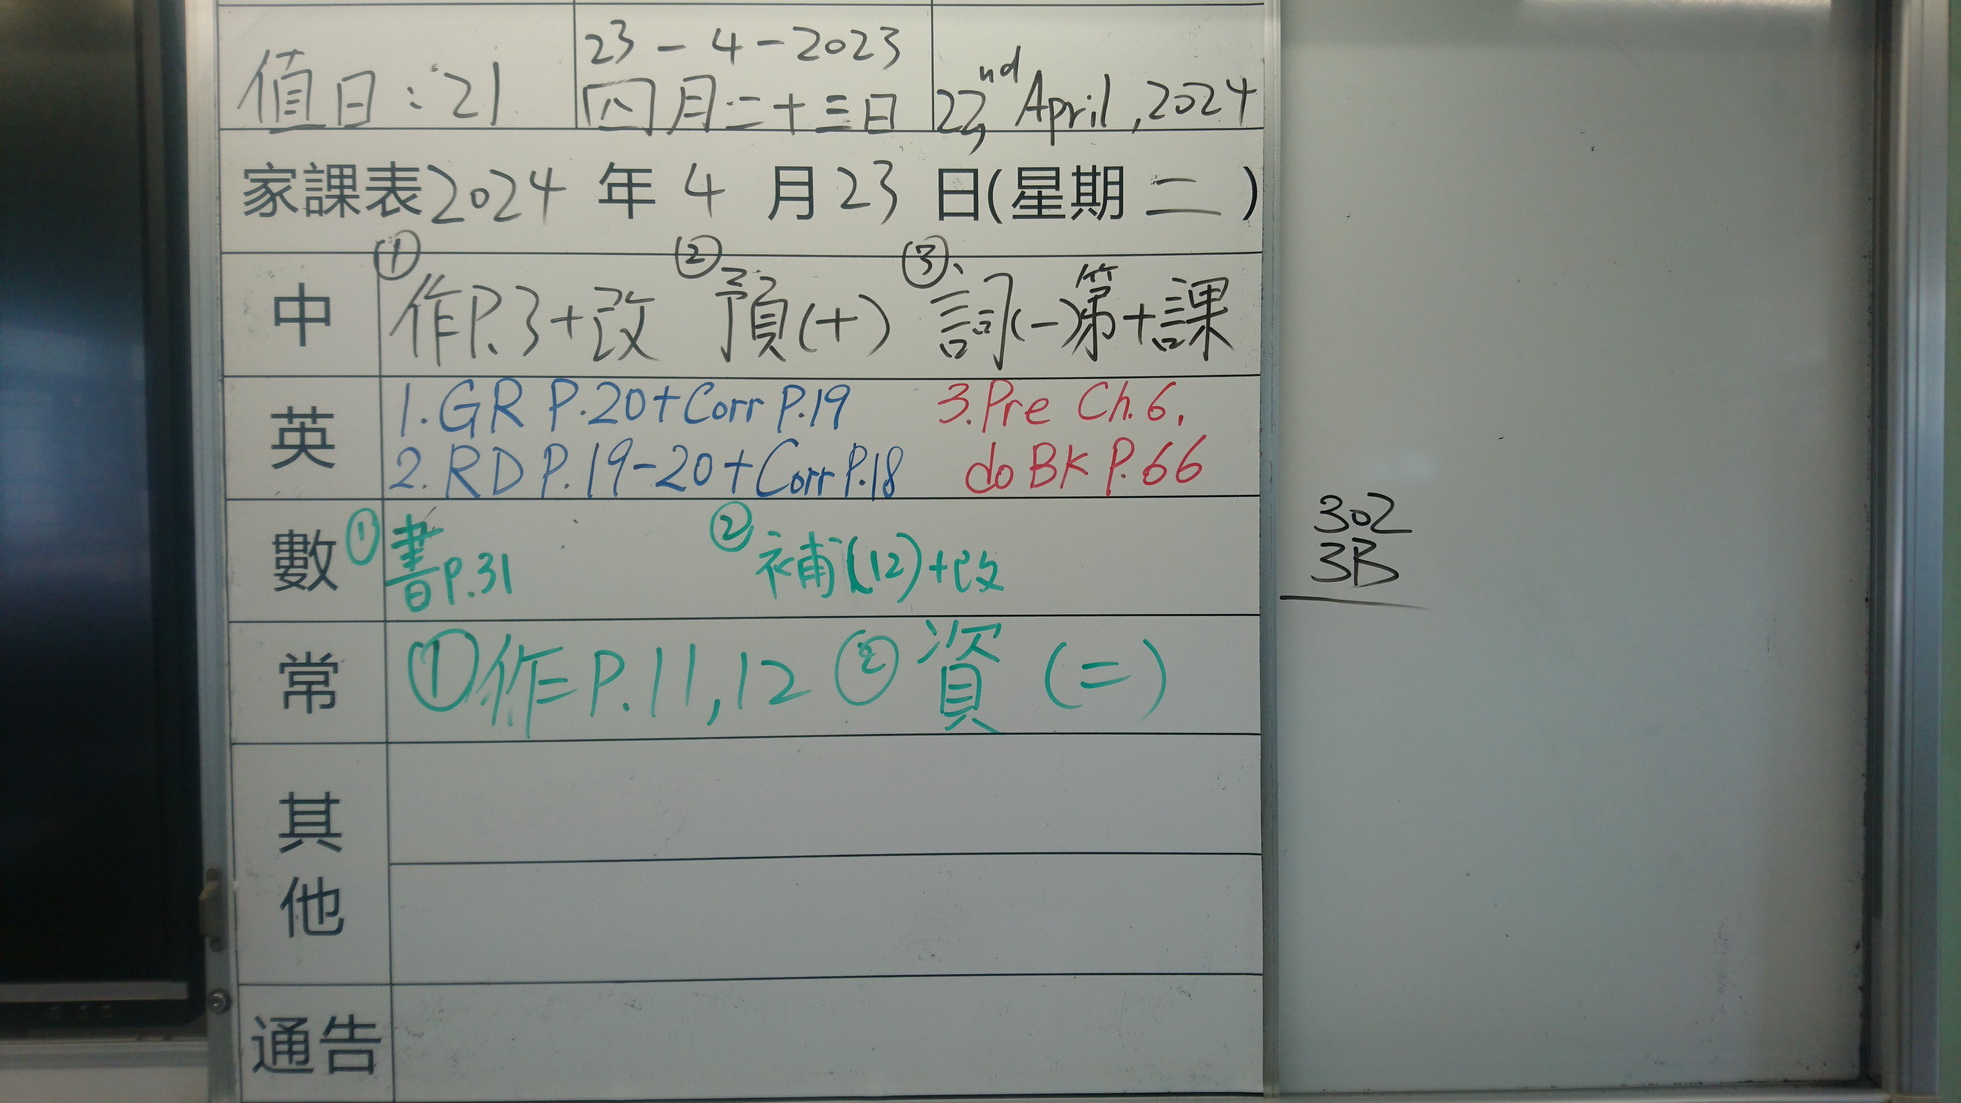 值日：21
23-4-2023
四月二十三日
22nd April, 2024
家課表2024年4月23日(星期二)
中
① 作P.3+改 ② 預(十) ③、詞(一)第十課
英
1. GR P.20+Corr P.19
2. RD P.19-20+Corr P.18
3. Pre Ch.6,
do BK P.66
數
① 書P.31 ② 補(12)+改
常
① 作P.11,12 ② 資(二)
其他
通告
302
3B